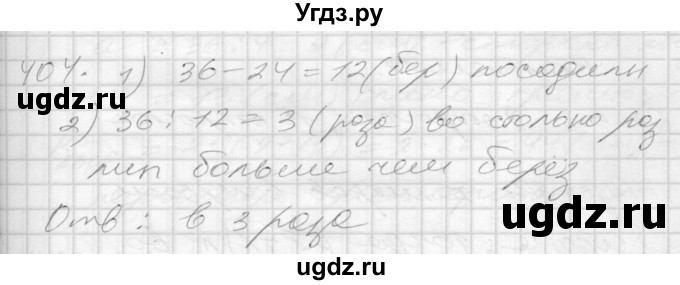 Угдз.ру
404. 1) 36-24=12(бер) посадили
ugdz.ru
ugdz.ru
2) 36:12=3 (раза) во столько раз
лип больше чем берёз
Отв: в 3 раза
ugdz.ru
ugdz.ru